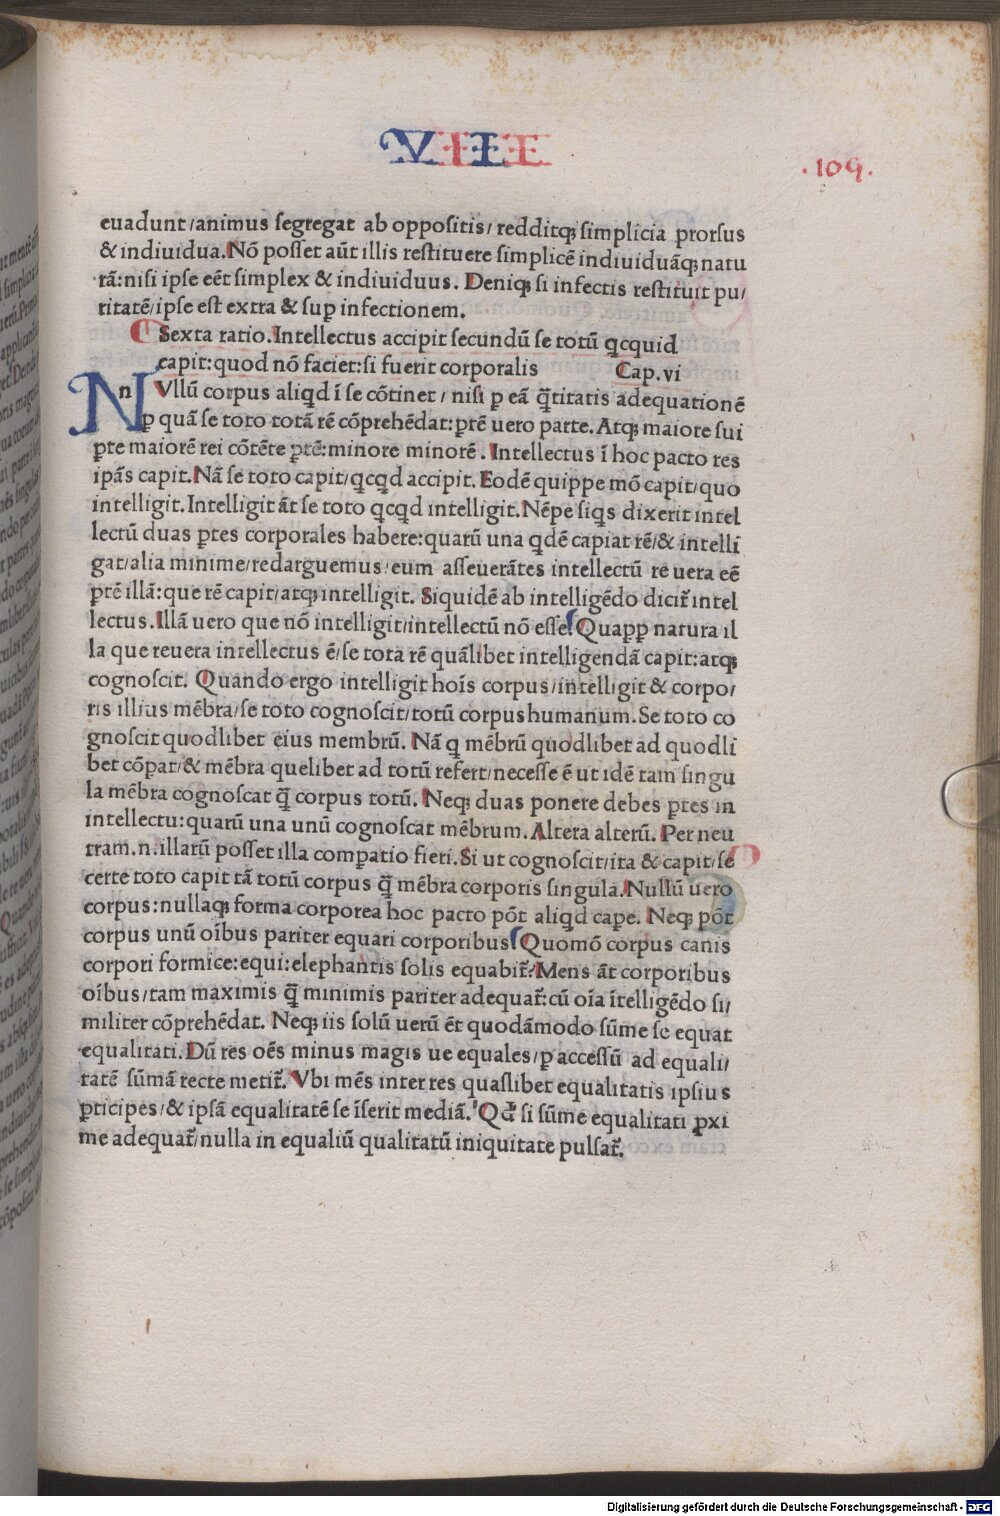 VIII
.109.
euadunt/animus ſegregat ab oppoſitis/redditqꝫ ſimplicia prorſus
& indiuidua. Nō poſſet aūt illis reſtituere ſimplicē indiuiduāqꝫ natu
rā: niſi ipſe eēt ſimplex & indiuiduus. Deniqꝫ ſi infectis reſtituit pu/
ritatē/ipſe eſt extra & ſuꝑ infectionem.
Sexta ratio. Intellectus accipit ſecundū ſe totū qcquid
capit: quod nō faciet: ſi fuerit corporalis Cap. vi
Nn Vllū corpus aliqd ī ſe cōtinet/niſi ꝑ eā q̄titatis adequationē
ꝑ quā ſe toto totā rē cōprehēdat: ꝑtē uero parte. Atqꝫ maiore ſui
ꝑte maiorē rei cōtēte ꝑtē: minore minorē. Intellectus ī hoc pacto res
ipās capit. Nā ſe toto capit/qcqd accipit. Eodē quippe mō capit/quo
intelligit. Intelligit āt ſe toto qcqd intelligit. Nēpe ſiqs dixerit intel
lectū duas ꝑtes corporales habere: quarū una qdē capiat rē/& intelli
gat/alia minime/redarguemus/eum aſſeuerātes intellectū re uera eē
ꝑtē illā: que rē capit/atqꝫ intelligit. Siquidē ab intelligēdo dicit̄ intel
lectus. Illā uero que nō intelligit/intellectū nō eſſe. Quaꝓꝑ natura il
la que reuera intellectus ē/ſe tota rē quālibet intelligendā capit: atqꝫ
cognoſcit. Quando ergo intelligit hoīs corpus/intelligit & corpo/
ris illius mēbra/ſe toto cognoſcit/totū corpus humanum. Se toto co
gnoſcit quodlibet eius membrū. Nā q mēbrū quodlibet ad quodli
bet cōꝑat/& mēbra quelibet ad totū refert/neceſſe ē ut idē tam ſingu
la mēbra cognoſcat q̄ corpus totū. Neqꝫ duas ponere debes ꝑtes in
intellectu: quarū una unū cognoſcat mēbrum. Altera alterū. Per neu
tram .n. illarū poſſet illa comꝑatio fieri. Si ut cognoſcit/ita & capit/ſe
certe toto capit tā totū corpus q̄ mēbra corporis ſingula. Nullū uero
corpus: nullaqꝫ forma corporea hoc pacto pōt aliqd caꝑe. Neqꝫ pōt
corpus unū oībus pariter equari corporibus. Quomō corpus canis
corpori formice: equi: elephantis ſolis equabit̄? Mens āt corporibus
oībus/tam maximis q̄ minimis pariter adequat̄: cū oīa ītelligēdo ſi/
militer cōprehēdat. Neqꝫ iis ſolū uerū ēt quodāmodo ſūme ſe equat
equalitati. Dū res oēs minus magis ue equales/ꝑ acceſſū ad equali/
tatē ſūmā recte metit̄. Vbi mēs inter res quaſlibet equalitatis ipſius
ꝑticipes/& ipſā equalitatē ſe īſerit mediā. Qd̄ ſi ſūme equalitati ꝓxi
me adequat̄/nulla in equaliū qualitatū iniquitate pulſat̄.
Digitalisierung gefördert durch die Deutsche Forschungsgemeinschaft - DFG